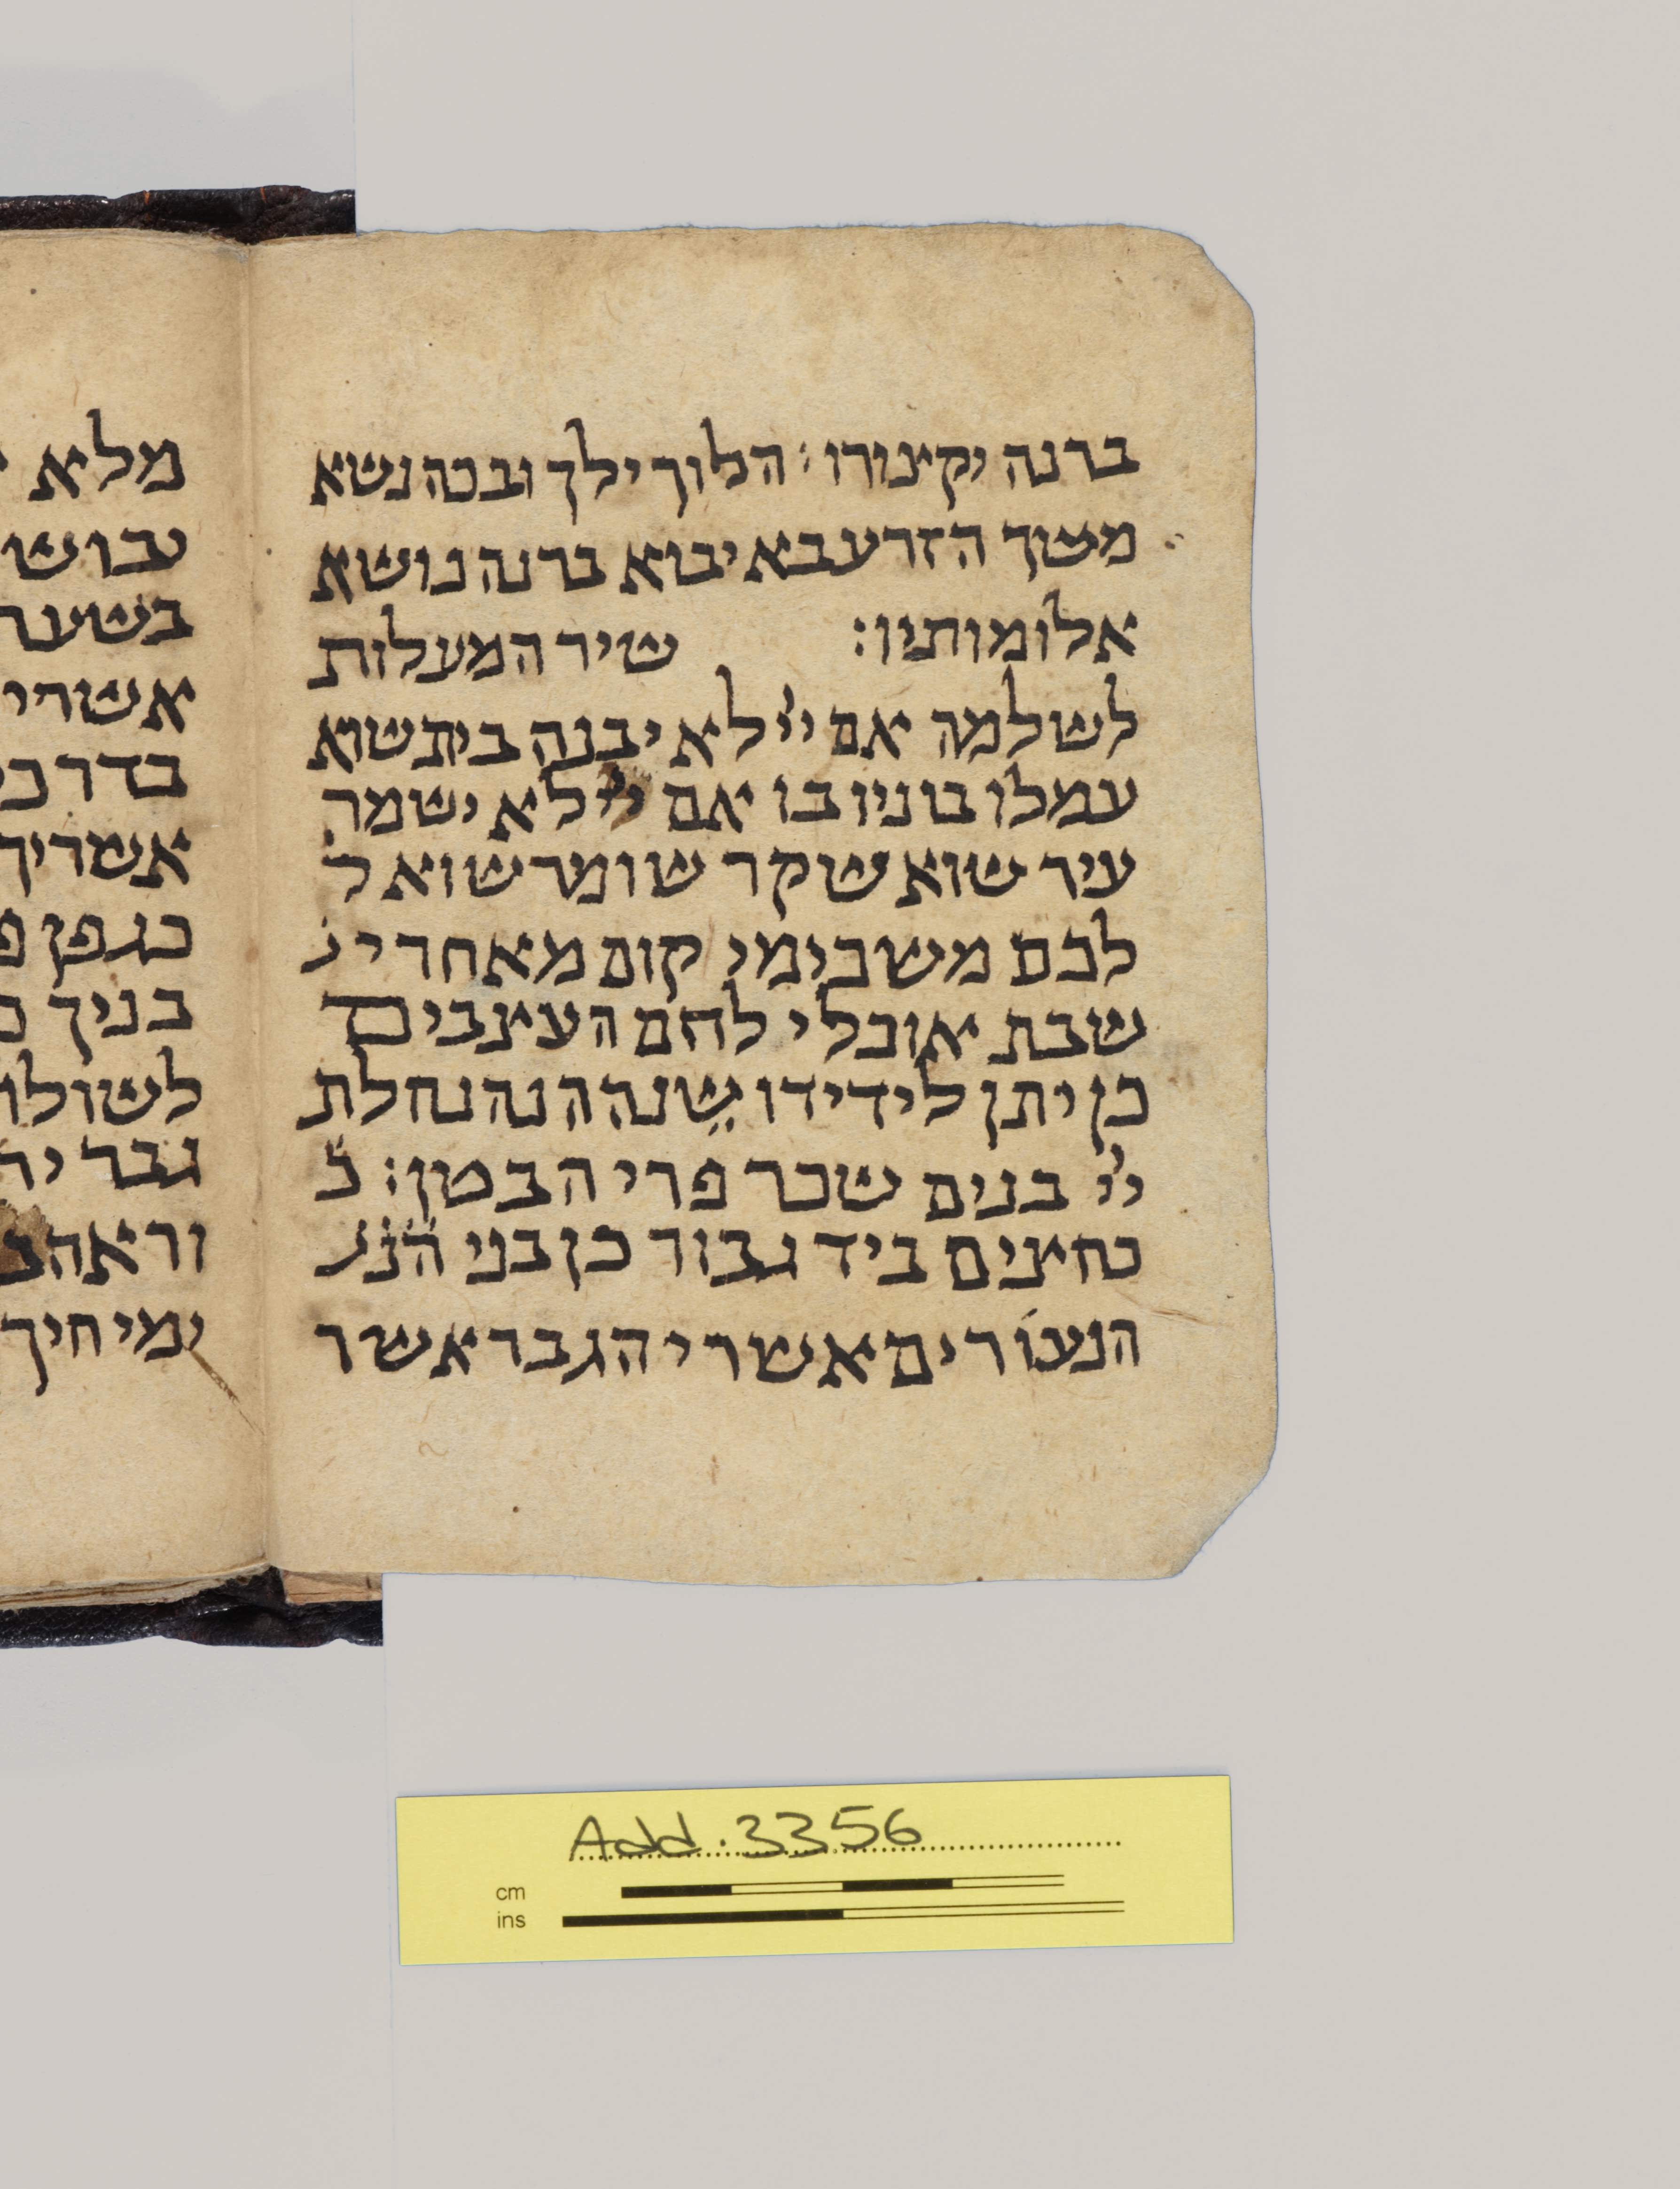 ברנה יקצורו: הלוך ילך ובכה נשא
משוך הזרע בא יבוא ברנה נושא
אלומותיו: שיר המעלות
לשלמה אם ייי לא יבנה בית שוא
עמלו בוניו בו אם ייי לא ישמר
עיר שוא שקר שומר שוא ל
לכם משכימי קום מאחרי נ
שבת אוכלי לחם העצבים
כן יתן לידידו שנה הנה נחלת
ייי בנים שכר פרי הבטן: כ
כחצים ביד גבור כן בני הנע
הנעורים אשרי הגבר אשר
מלא
יבושו
בשער
אשרי
בדרכ
אשריך
כגפן פ
בניך
לשולח
גבר יר
וראה ב
ימי חיך
Add. 3356
cm
ins